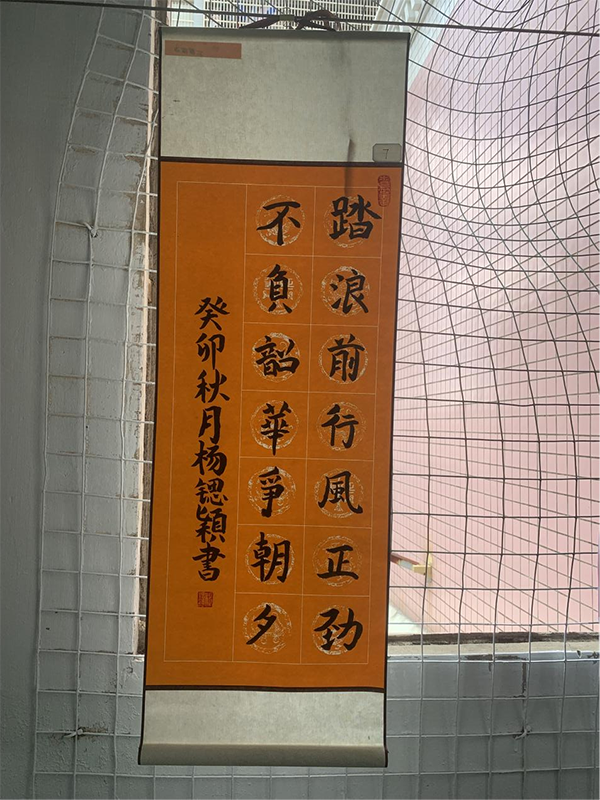 踏浪前行風正劲
不負韶華爭朝夕
癸卯秋月杨锶颖書